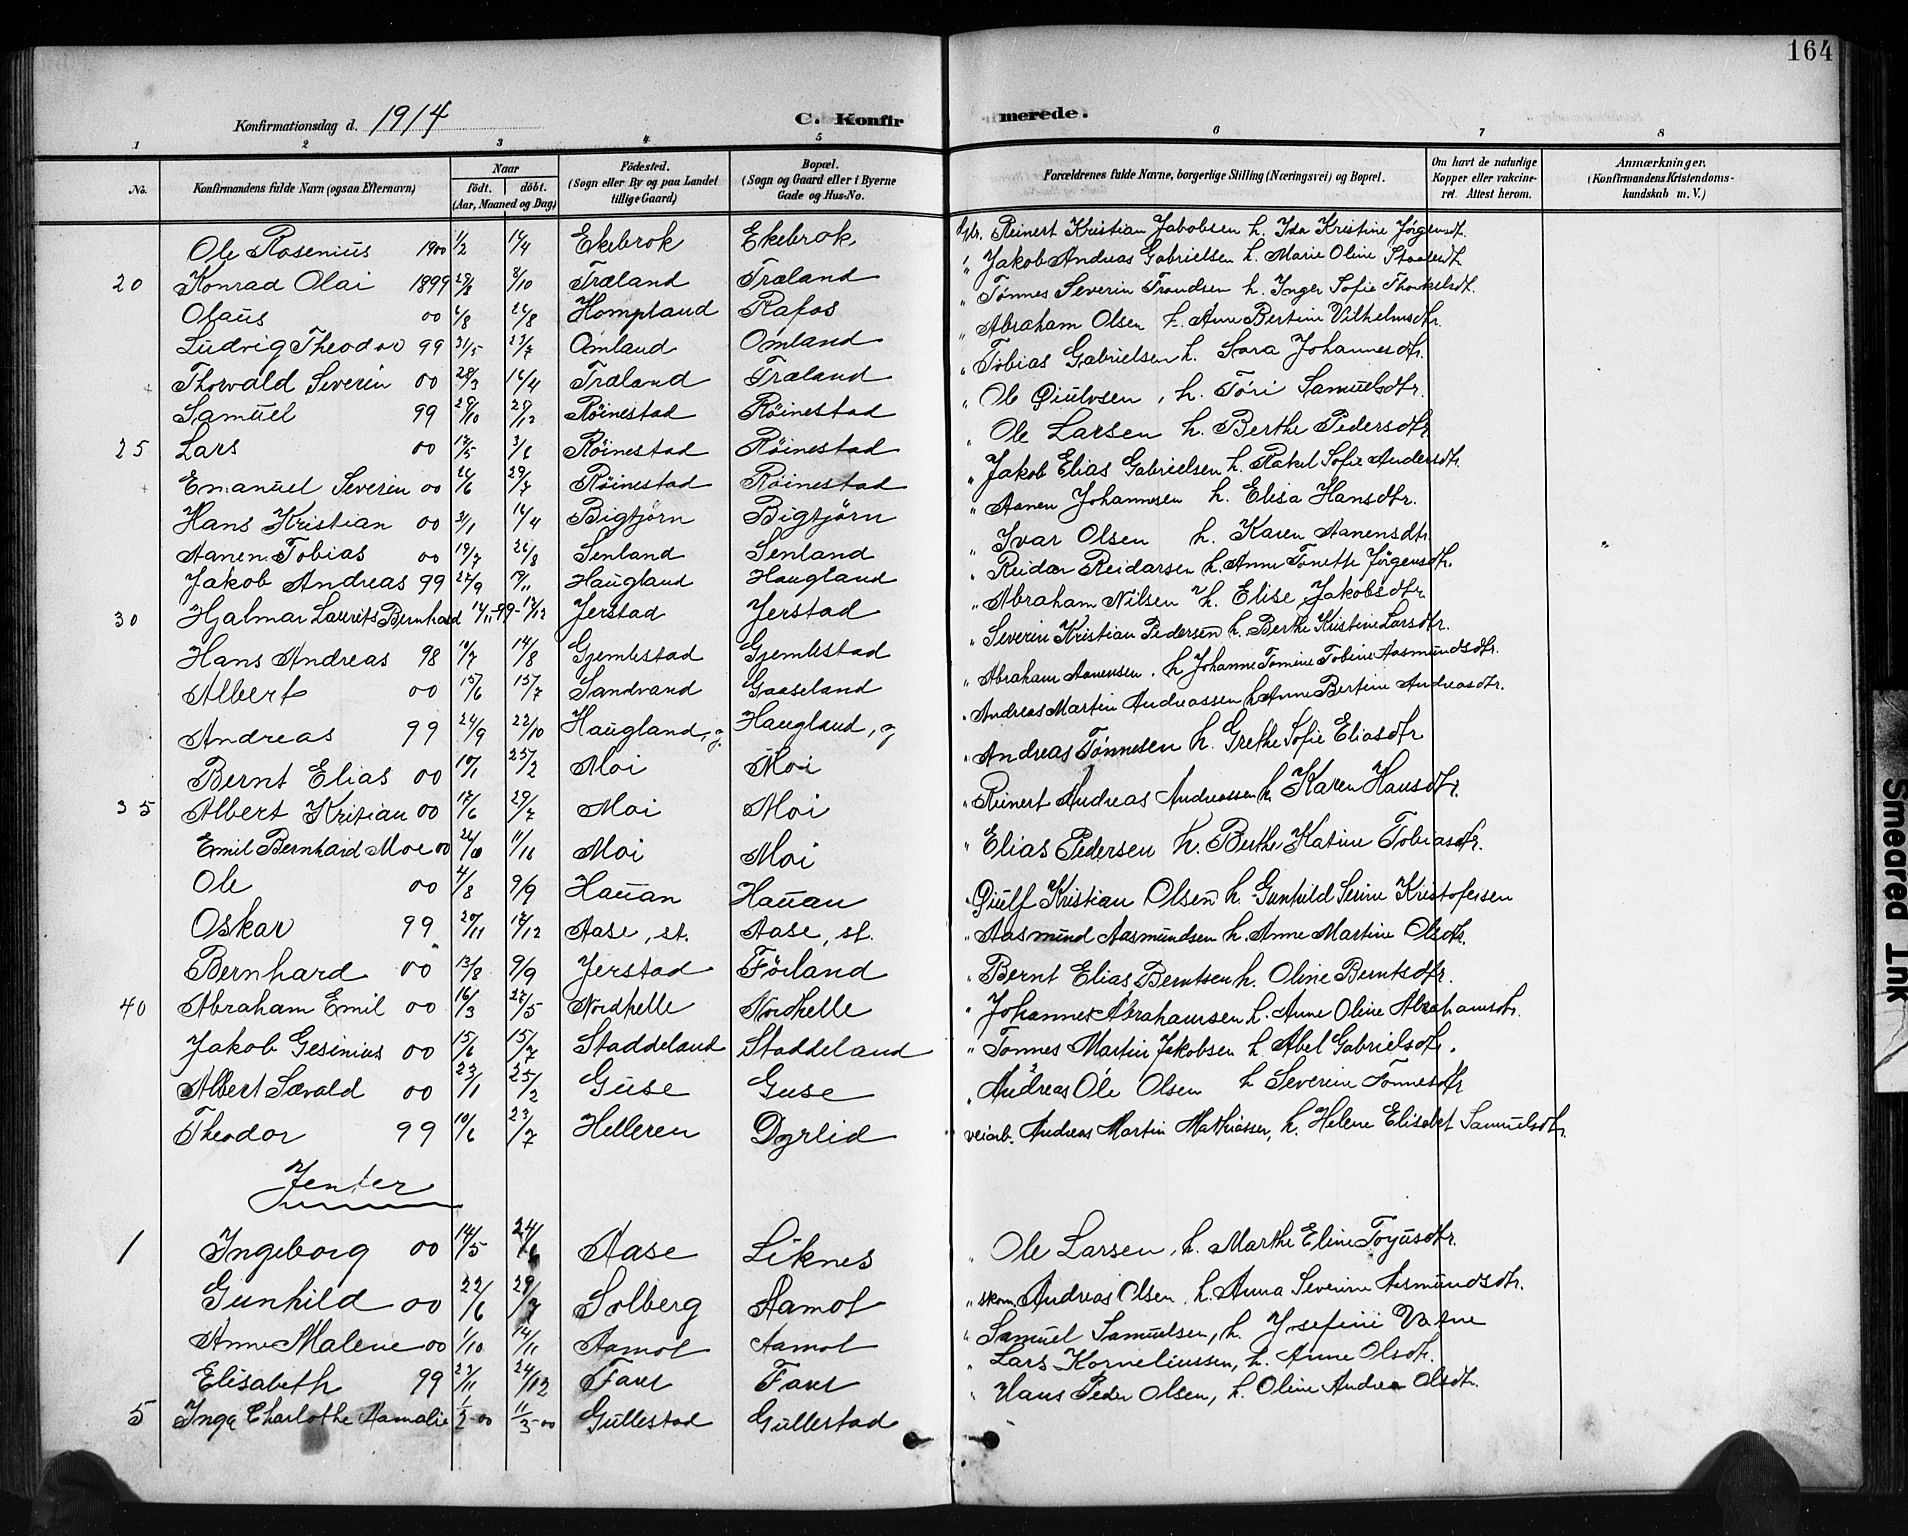 164
Konfirmationsdag d. 1914 C. Konfirmerede.
1 2 3 4 5 6 7 8
No. Konfirmandens fulde Navn (ogsaa Efternavn) Naar født. døbt. (Aar, Maaned og Dag) Födested. (Sogn eller By og paa Landet tillige Gaard) Bopæl. (Sogn og Gaard eller i Byerne Gade og Hus-No. Forældrenes fulde Navne, borgerlige Stilling (Næringsvei) og Bopæl. Om havt de naturlige Kopper eller vakcineret. Attest herom. Anmærkninger. (Konfirmandens Kristendomskundskab m. V.)
Ole Rosenius 1900 1/2 16/4 Ekebrok Ekebrok Reinert Kristian Jakobsen h. Ida Kristine Jørgensdt.
20 Konrad Olai 1899 29/8 8/10 Træland Træland " Jakob Andreas Gabrielsen h. Marie Oline
Olaus 00 6/8 26/8 Hompland Rafos " Tønnes Severin Trondsen h. Inger Sofie Thorkelsdt.
Ludvig Theodor 99 31/5 23/7 Omland Omland " Abraham Olsen h. Ane Bertine Vilhelmsdtr.
Thorvald Severin 00 28/3 16/4 Træland Træland " Tobias Gabrielsen h. Sara Johannesdtr.
Samuel 99 29/10 27/12 Röinestad Röinestad " Ole Øiulvsen, h. Tøri Samuelsdtr.
25 Lars 00 12/5 3/6 Röinestad Röinestad " Ole Larsen h. Berthe Pedersdtr
Emanuel Severin 00 26/6 29/7 Röinestad Röinestad " Jakob Elias Gabrielsen h. Rakel Sofie Andersdtr.
Hans Kristian 00 31/1 16/4 Bigtjörn Bigtjörn " Aanen Johannesen h. Elisa Hansdtr.
Aanen Tobias 00 19/7 26/8 Senland Senland " Ivar Olsen h. Karen Aanensdtr. "
Jakob Andreas 99 27/9 19/11 Haugland Haugland " Reidar Reidarsen h. Anne Tonette Jørgensdtr.
30 Hjalmar Laurits Bernhard 12/11-99- 17/12 Jerstad Jerstad " Abraham Nilsen h. Elise Jakobsdtr
Hans Andreas 98 10/7 14/8 Gjemlestad Gjemlestad " Severin Kristian Pedersen h. Berthe Kristine Larsdtr.
Albert 00 15/6 15/7 Sandvand Gaaseland " Abraham Aanensen. h. Johanne Tomine Tobine Aasmundsdtr.
Andreas 99 24/9 22/10 Haugland, g. Haugland, g " Andreas Martin Andreassen h. Anne Bertine Andreasdtr.
Bernt Elias 00 10/1 25/2 Moi Moi " Andreas Tønnesen h. Grethe Sofie Eliasdtr
35 Albert Kristian 00 17/6 29/7 Moi Moi " Reinert Andreas Andreassen h. Karen Hansdtr.
Emil Bernhard Moe 00 Moi Moi " Elias Pedersen h. Berthe Katine Tobiasdtr.
Ole 00 4/8 9/9 Hauan Hauan " Øiulf Kristian Olsen h. Gunhild Serine Kristofersen
Oskar 99 20/11 17/12 Aase, st. Aase, st. " Aasmund Aasmundsen h. Anne Martine Olsdtr.
Bernhard 00 13/8 9/9 Jerstad Föiland " Bernt Elias Berntsen h. Oline Berntsdtr.
40 Abraham Emil 00 16/3 27/5 Nordhelle Nordhelle " Johannes Abrahamsen h. Anne Oline Abrahamsdtr.
Jakob Gesinius 00 15/6 15/7 Staddeland Staddeland " Tonnes Martin Jakobsen h. Abel Gabrielsdtr.
Albert Sævald 00 23/1 25/2 Guse Guse " Andreas Ole Olsen h Severine Tonnesdtr
Theodor 99 10/6 23/7 Helleren Dyrlid veiarb. Andreas Martin Mathiassen, h. Helene Elisabet Samuelsdtr.
Jenter
1 Ingeborg 00 14/5 24/6 Aase Liknes " Ole Larsen, h. Marthe Eline
Gunhild 00 22/6 29/7 Solberg Aamot " skom. Andreas Olsen, h. Anna Severine Aasmundsdtr.
Anne Malene 00 1/10 14/11 Aamot Aamot " Samuel Samuelsen, h. Josefine
Elisabeth 99 27/11 24/12 " Lars Korneliussen, h. Anne Olsdtr.
5 Inga Charlothe Aamalie 1/2-00 11/3-00 Gullestad Gullestad " Hans Peder Olsen, h. Oline Andrea Olsdtr.
Smeared Ink